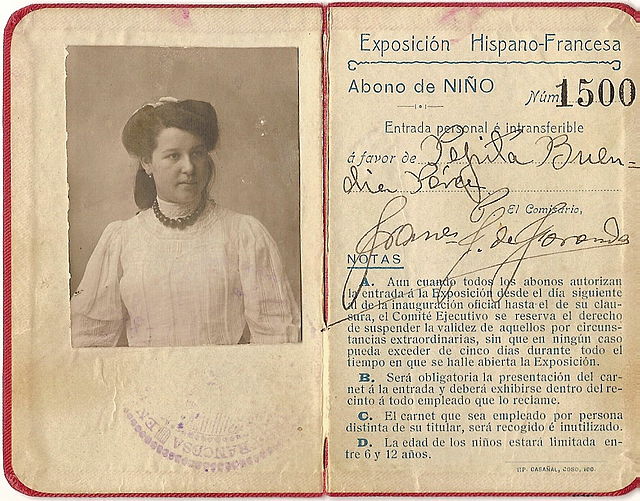 Exposición Hispano-Francesa
Abono de NIÑO
Núm 1500
Entrada personal é intransferible
á favor de Pepita Buen-
día Pérez
El Comisario,
NOTAS
A. Aun cuando todos los abonos autorizan
la entrada á la Exposición desde el día siguiente
al de la inauguración oficial hasta el de su clau-
sura, el Comité Ejecutivo se reserva el derecho
de suspender la validez de aquellos por circuns-
tancias extraordinarias, sin que en ningún caso
pueda exceder de cinco días durante todo el
tiempo en que se halle abierta la Exposición.
B. Será obligatoria la presentación del car-
net á la entrada y deberá exhibirse dentro del re-
cinto á todo empleado que lo reclame.
C. El carnet que sea empleado por persona
distinta de su titular, será recogido é inutilizado.
D. La edad de los niños estará limitada en-
tre 6 y 12 años.
TIP. CASAÑAL, COSO, 100.